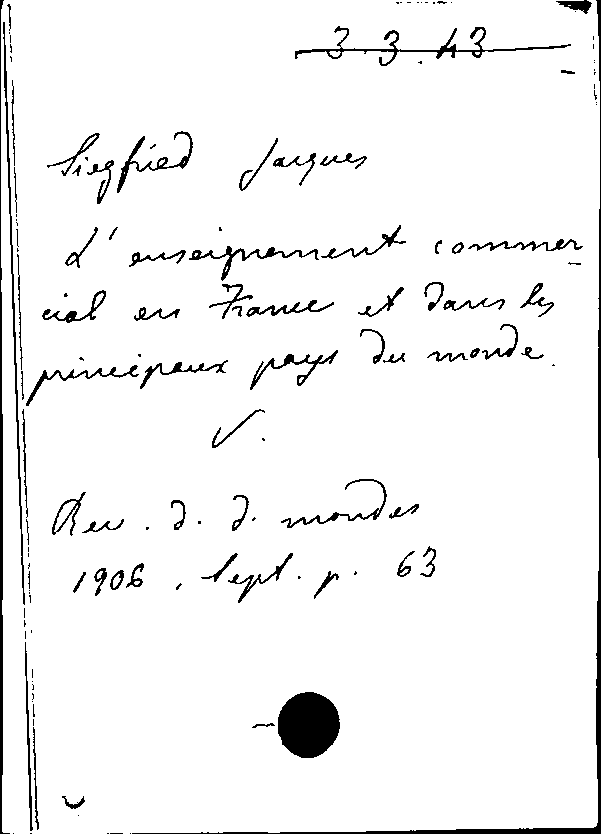 3.3.43
Siegfried Jacques
L'enseignement commer-
cial en France et dans les
principaux pays du monde.
V.
Rev. d. d. mondes
1906, Sept. p. 63